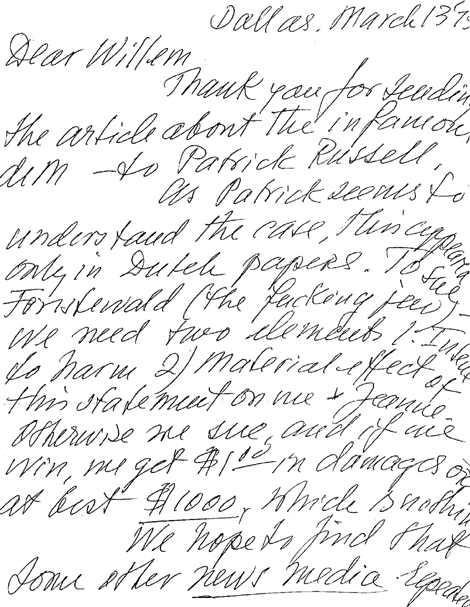 Dallas. March 13
Dear Willem
Thank you for sendin
the article about the infamou
deM — to Patrick Russell.
As Patrick seems to
understand the case, this appeara
only in Dutch papers. To sue
Foristewald (the fucking jew) —
we need two elements 1. Intent
to harm 2) Material effect of
this statement on me + Jeanne.
Otherwise we sue, and if we
win, we get $1.00 in damages or,
at best $1000, which is nothin
We hope to find that
some other news media repeated